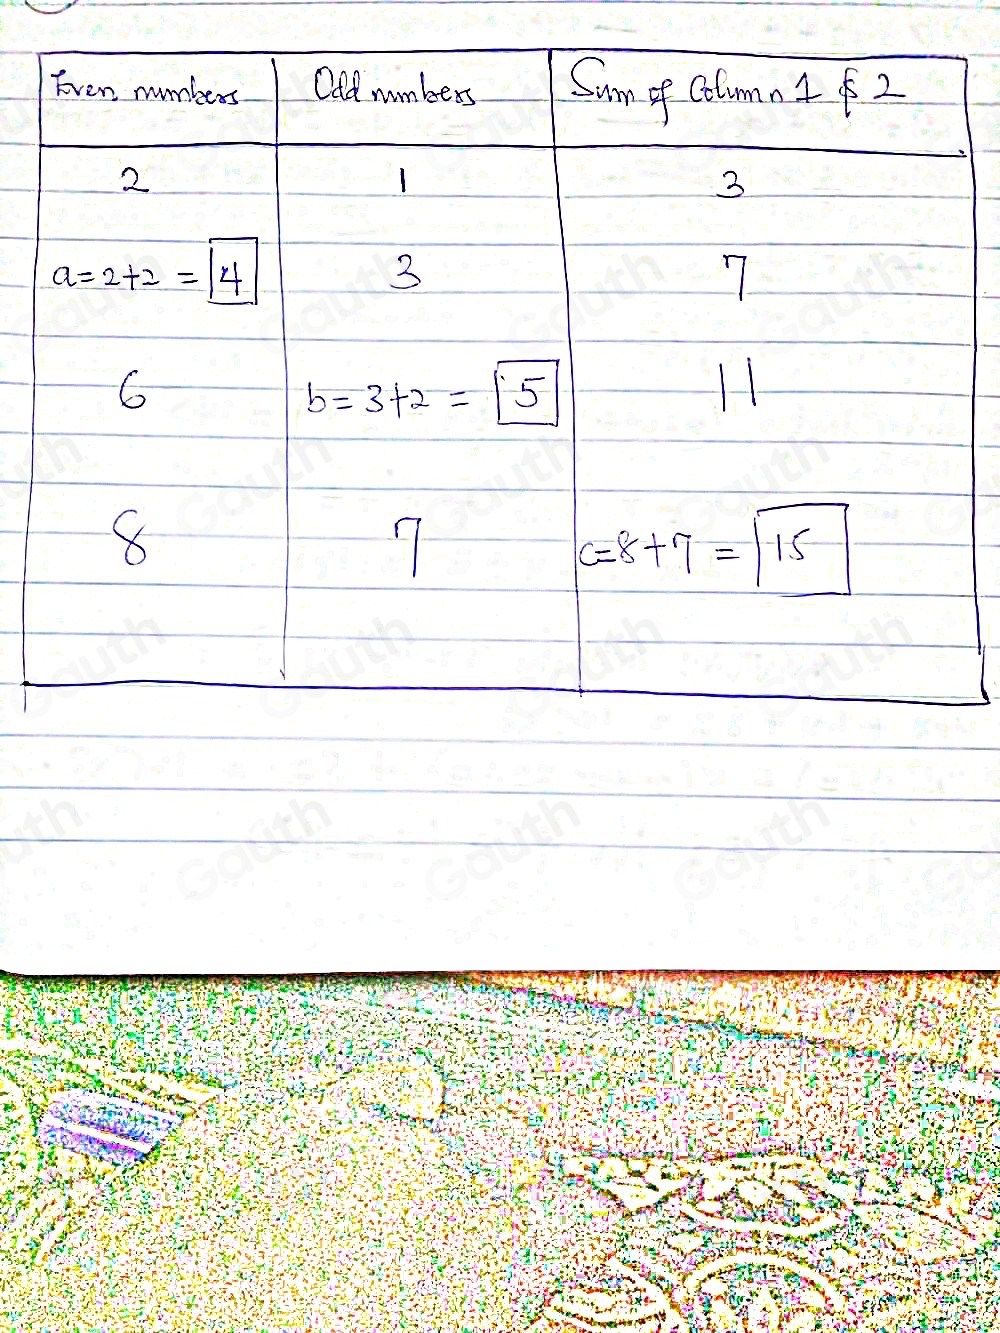 Even numbers Odd numbers Sum of Column 1 & 2
2 1 3
a=2+2 = 4 3 7
6 b=3+2 = 5 11
8 7 c=8+7 = 15
Gauth